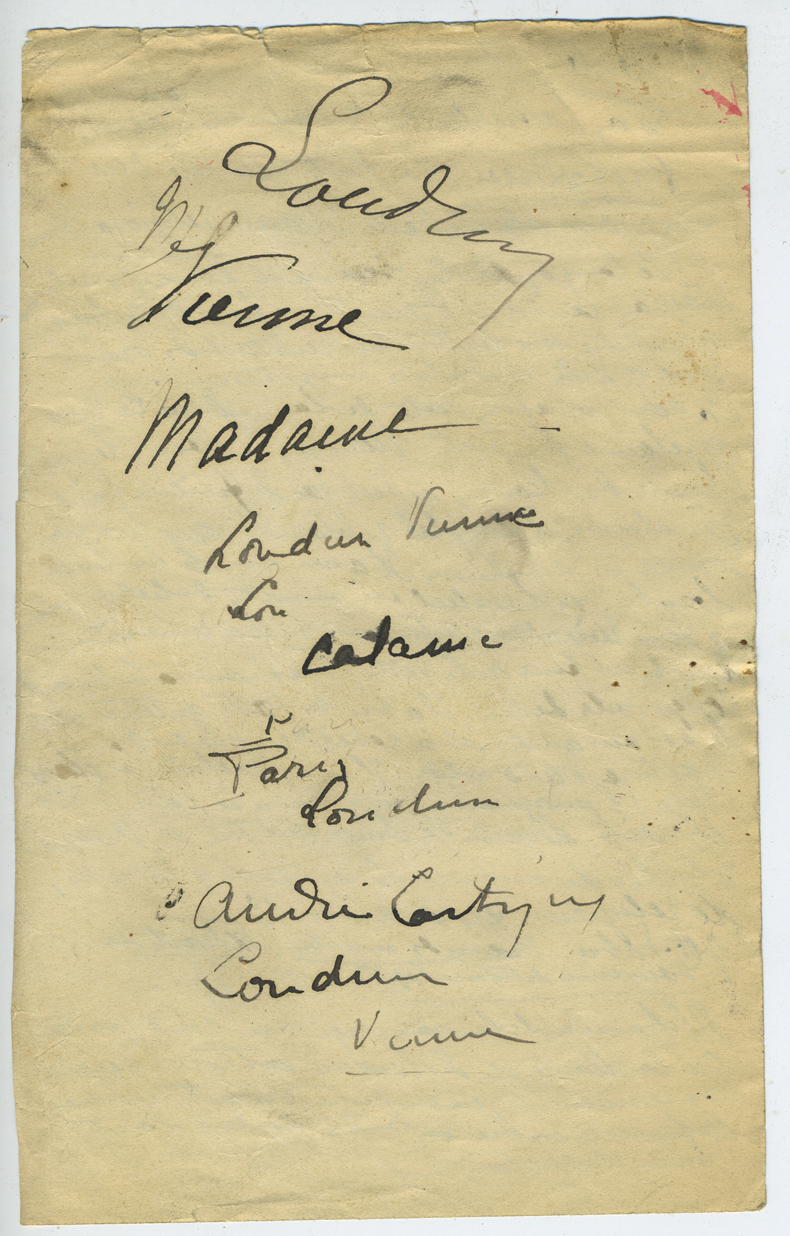 London
Vienne
Madame
London Vienne
Lon
Calame
P
Paris
London
André Castaigne
London
Vienne